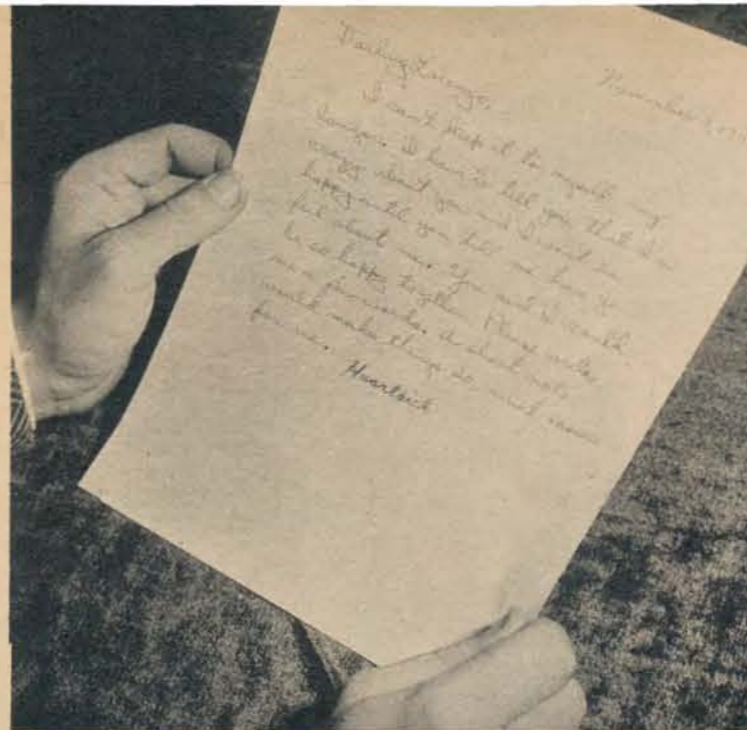 November
Darling Lorenzo,
I can't keep it to myself any
longer. I have to tell you that I'm
crazy about you and I won't be
happy until you tell me how you
feel about me. You and I could
be so happy together. Please write
me a few words. A short note
would make things so much
for me.